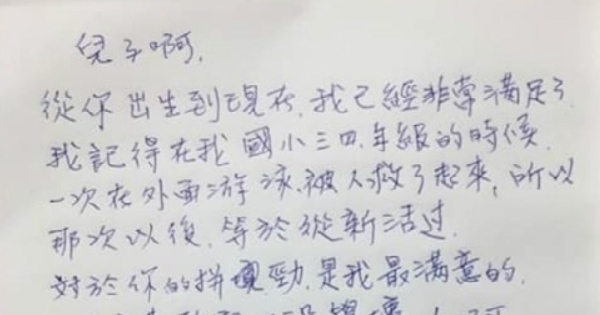 兒子啊,
從你出生到現在,我已經非常滿足了.
我記得在我國小三四年級的時候.
一次在外面游泳被人救了起來,所以
那次以後,等於從新活过.
對於你的拼勁,是我最滿意的.